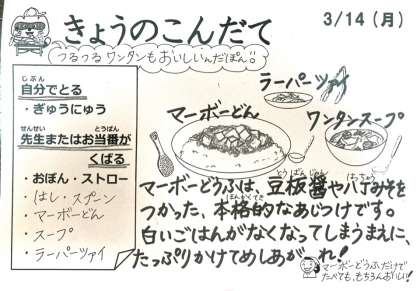 きょうのこんだて
3/14（月）
つるつるワンタンもおいしいんだぽん!!
自分でとる
じぶん
・ぎゅうにゅう
先生またはお当番が
せんせい とうばん
くばる
・おぼん・ストロー
・はし・スプーン
・マーボーどん
・スープ
・ラーパーツァイ
ラーパーツァイ
マーボーどん
ワンタンスープ
マーボーどうふは、豆板醤や八丁みそを
とうばんじゃん はっちょう
つかった、本格的なあじつけです。
ほんかくてき
白いごはんがなくなってしまうまえに、
たっぷりかけてめしあがれ！
マーボーどうふだけで
たべても、もちろんおいしい！